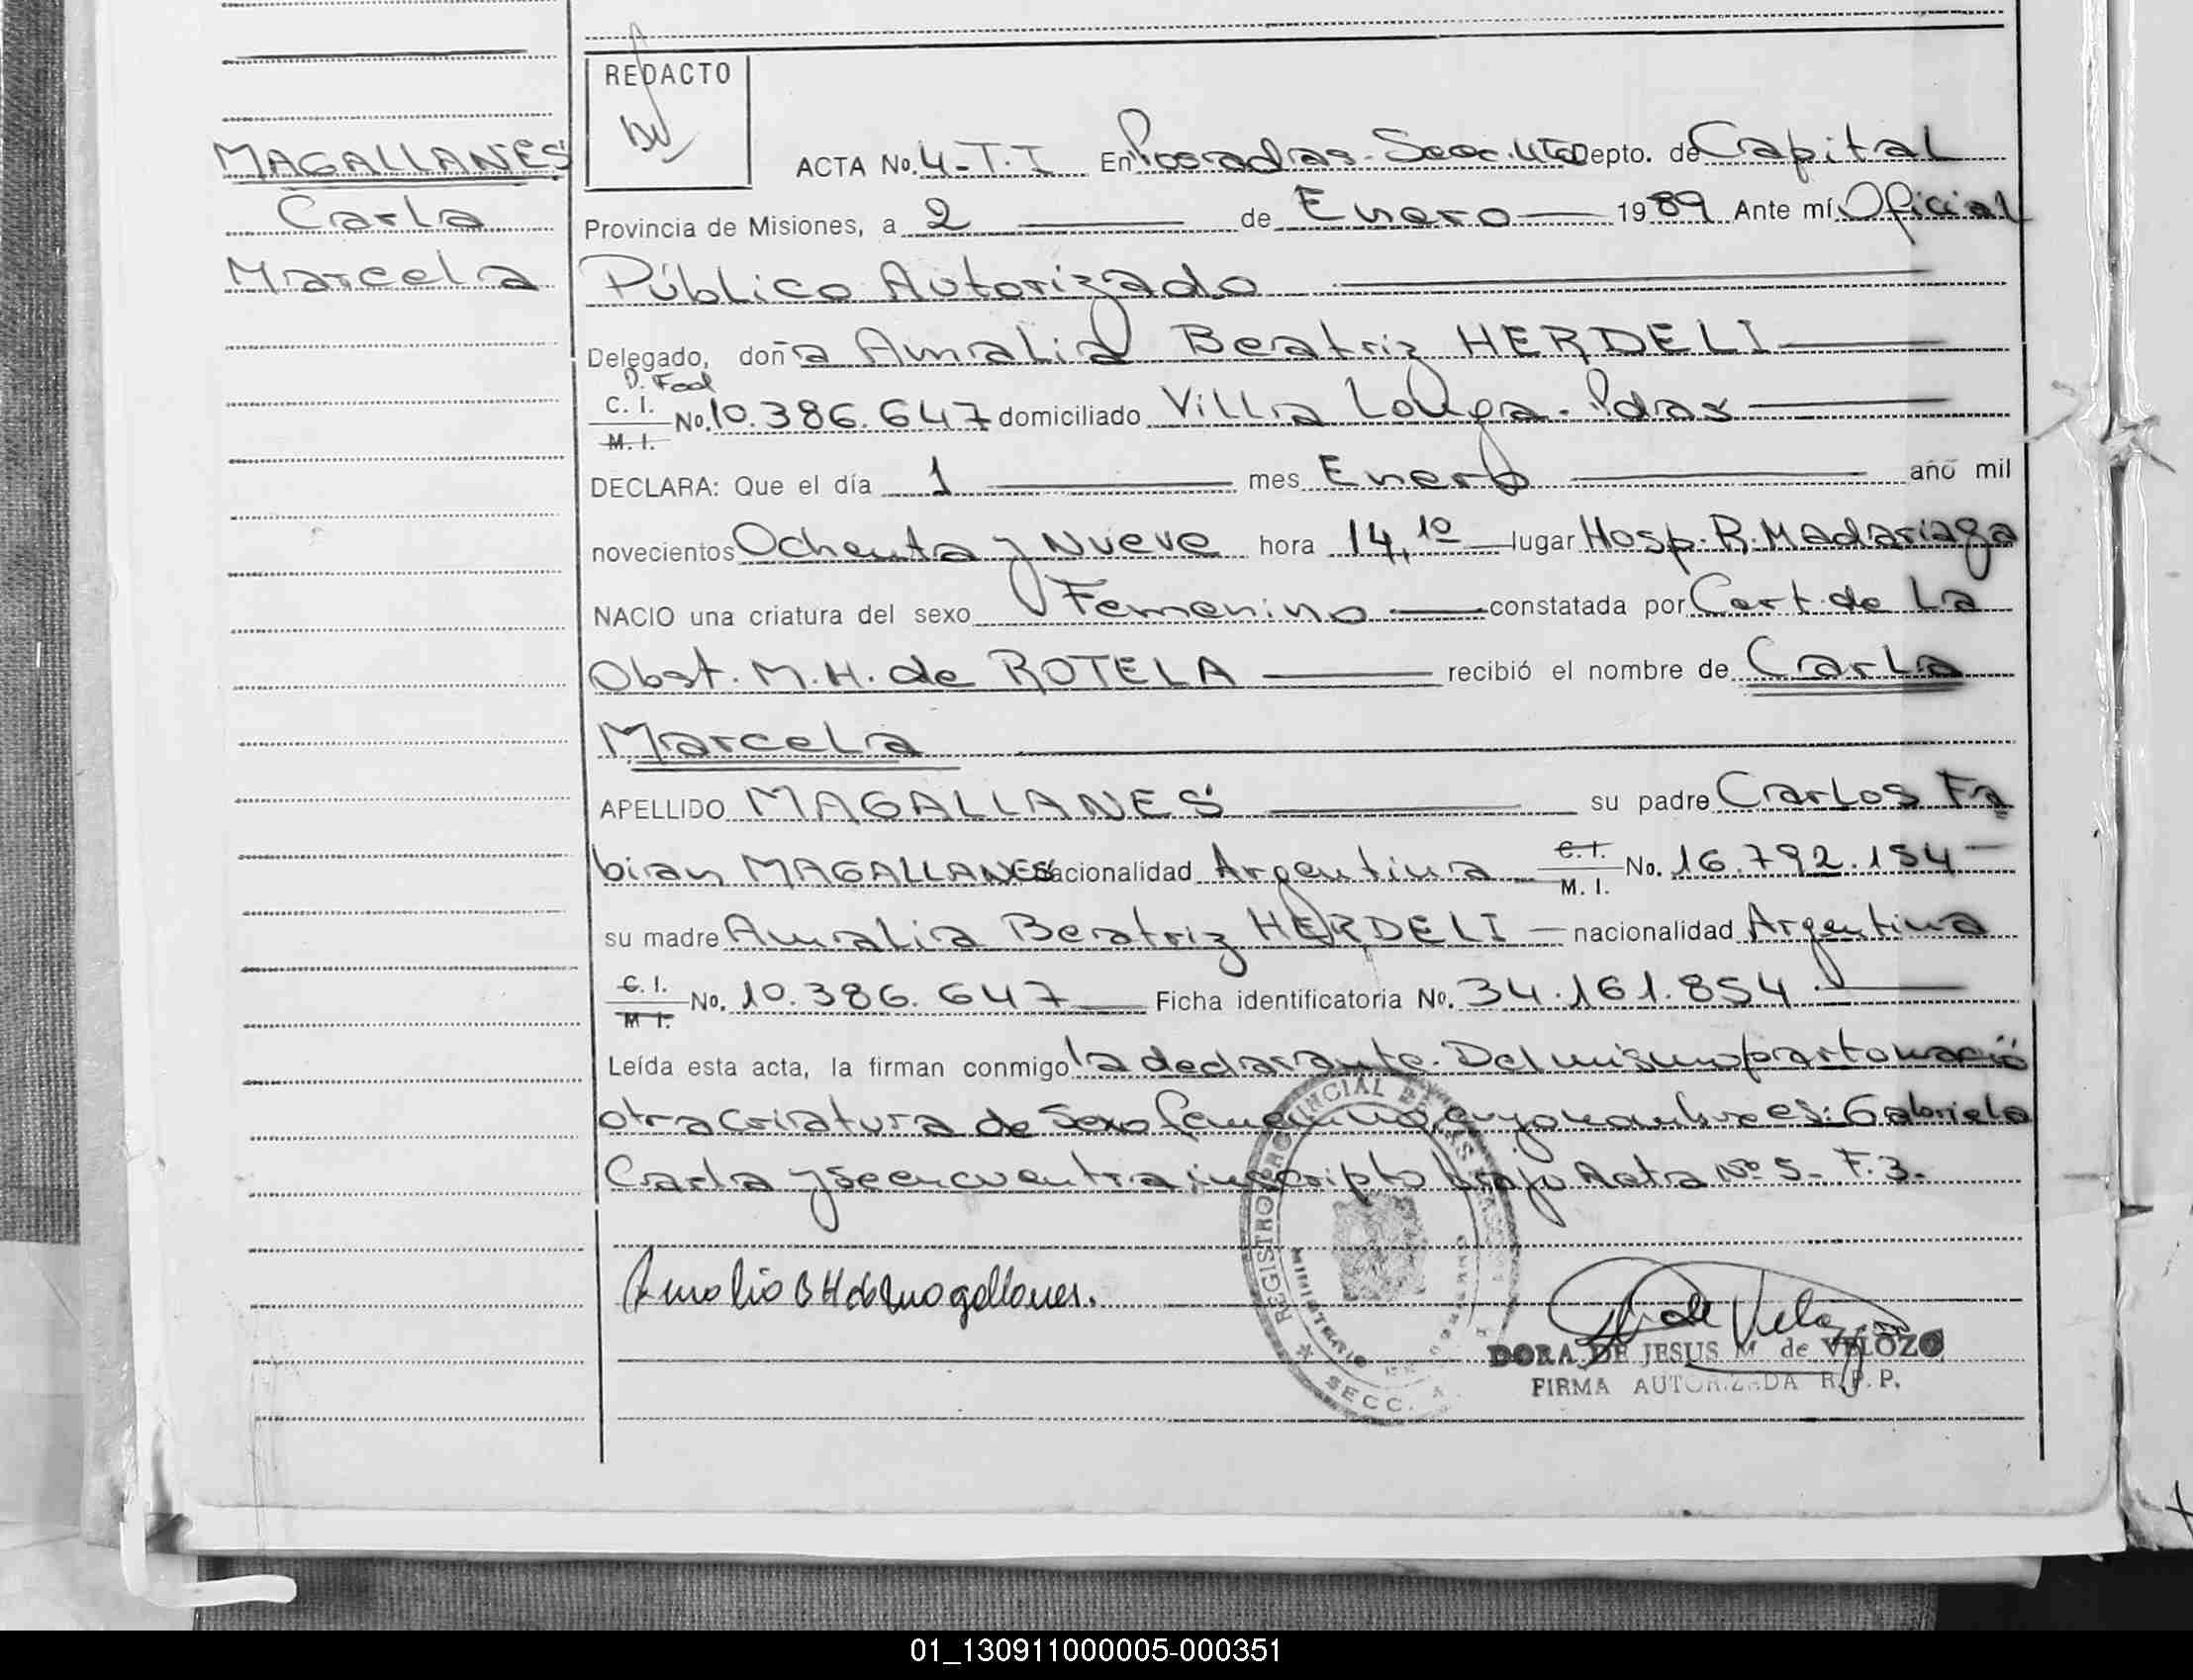 REDACTO
MAGALLANES
Carla
Marcela
ACTA No. 4-T.I En Posadas-Secc. 4ta Depto. de Capital
Provincia de Misiones, a 2 de Enero 1989 Ante mí Oficial
Público Autorizado
Delegado, doña Amalia Beatriz HERDELI
C. I. M. I. No. 10.386.647 domiciliado Villa Longa-Pdas
DECLARA: Que el día 1 mes Enero año mil
novecientos Ochenta y Nueve hora 14,10 lugar Hosp. R. Madariaga
NACIO una criatura del sexo Femenino constatada por Cert. de La
Obst. M. H. de ROTELA recibió el nombre de Carla
Marcela
APELLIDO MAGALLANES su padre Carlos Fa
bian MAGALLANES nacionalidad Argentina C. I. M. I. No. 16.792.154
su madre Amalia Beatriz HERDELI nacionalidad Argentina
C. I. M. I. No. 10.386.647 Ficha identificatoria No. 34.161.854
Leída esta acta, la firman conmigo la declarante. Del mismo parto nació
otra criatura de sexo femenino, cuyo nombre es: Gabriela
Carla y se encuentra inscripto bajo Acta Nº 5- F.3.
Amalia B H de Magallanes.
de Velozo
DORA DE JESUS M. de VELOZO
FIRMA AUTORIZADA R. P. P.
REGISTRO PROVINCIAL DE LAS PERSONAS
MINISTERIO DE GOBIERNO
SECC.
01_130911000005-000351